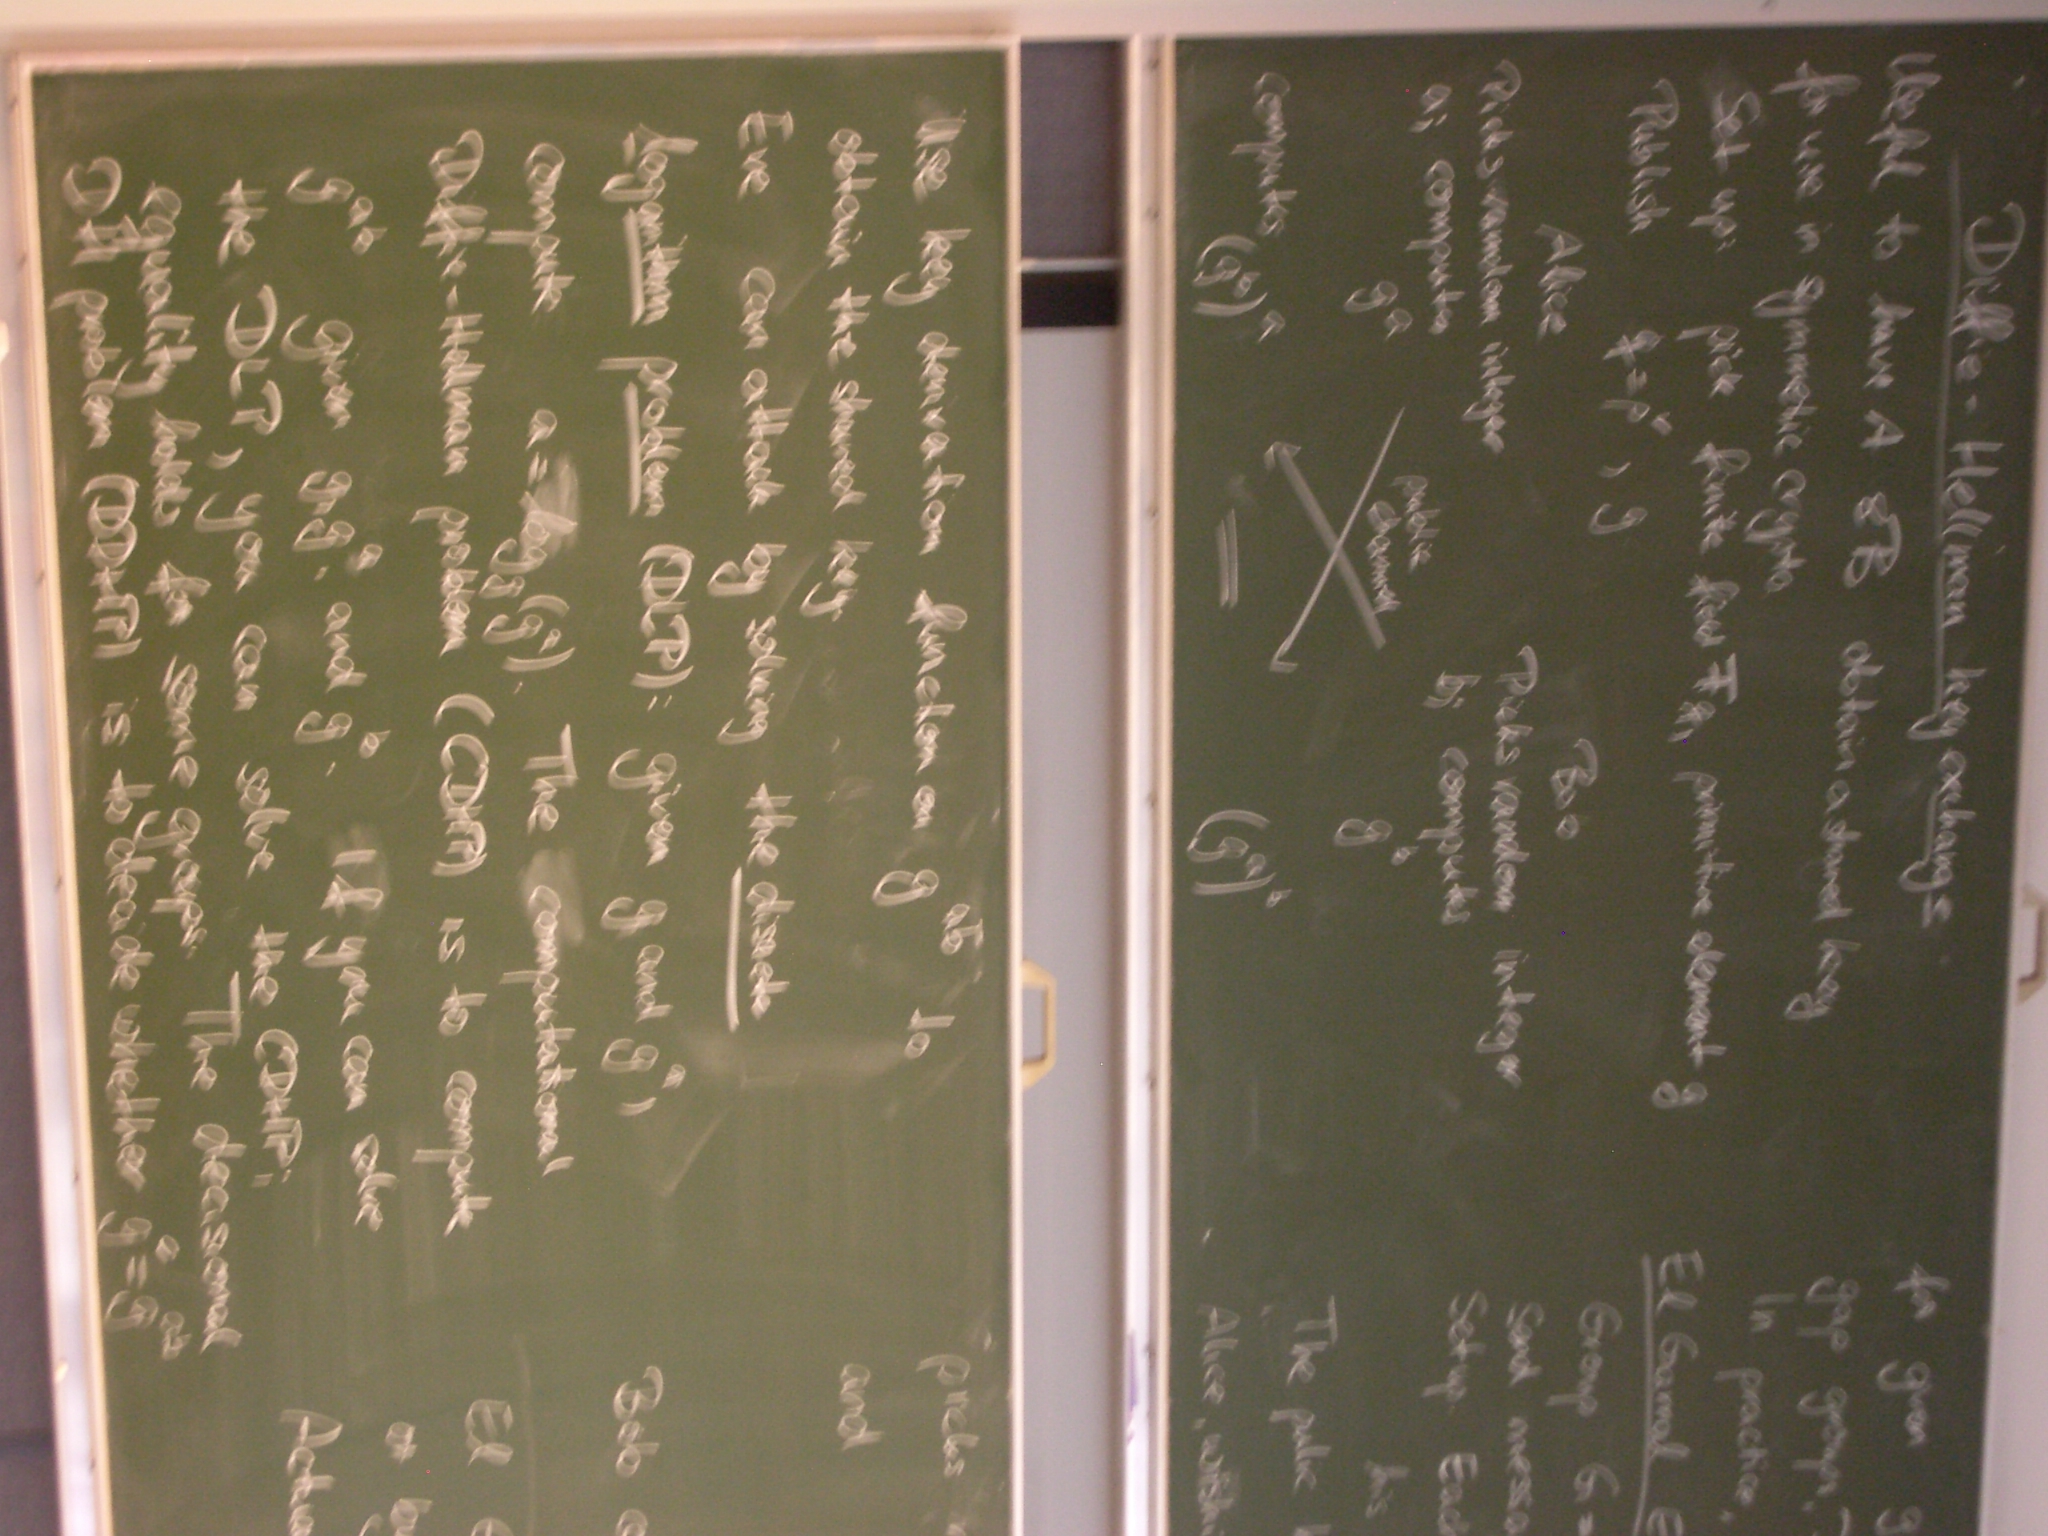 Diffie-Hellman key exchange
Useful to have A & B obtain a shared key
for use in symmetric crypto
Set up: pick finite field F_q, primitive element g
Publish q = p^n, g
Alice Bob
Picks random integer Picks random integer
a; computes b; computes
g^a g^b
public
channel
computes (g^b)^a = (g^a)^b
Use key derivation function on g^ab to
obtain the shared key.
Eve can attack by solving the discrete
logarithm problem (DLP): given g and g^a,
compute a = log_g(g^a). The computational
Diffie-Hellman problem (CDHP) is to compute
g^ab given g, g^a, and g^b. If you can solve
the DLP, you can solve the CDHP;
equality holds for some groups. The decisional
DH problem (DDHP) is to decide whether g^c = g^ab
for given g
gap group.
In practice,
El Gamal E
Group G =
Send messa
Set up. Each
his
The public k
Alice, wishin
picks
and
Bob
El
or bu
Actua